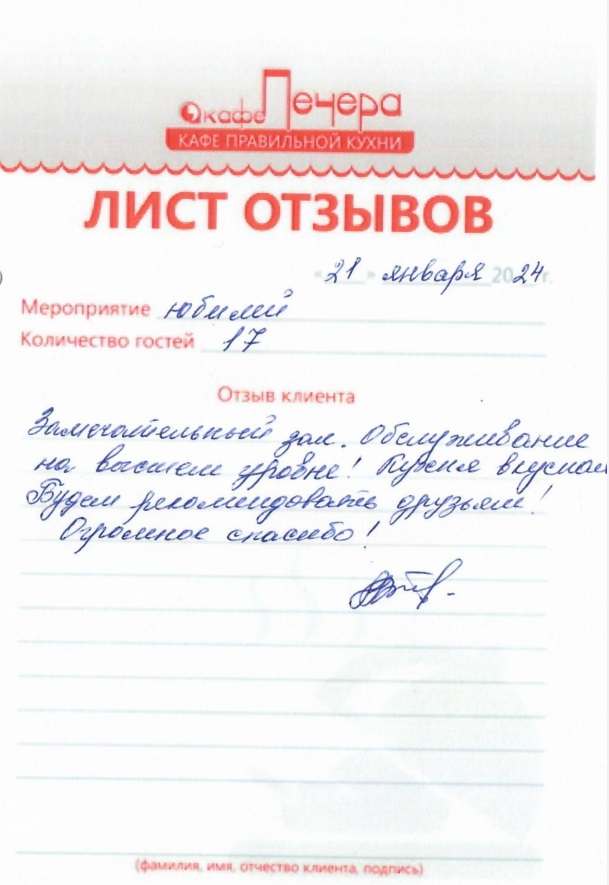 кафе Печера
КАФЕ ПРАВИЛЬНОЙ КУХНИ
ЛИСТ ОТЗЫВОВ
«21» января 2024 г.
Мероприятие юбилей
Количество гостей 17
Отзыв клиента
Замечательный зал. Обслуживание
на высшем уровне! Кухня вкусная
Будем рекомендовать друзьям!
Огромное спасибо!
(фамилия, имя, отчество клиента, подпись)